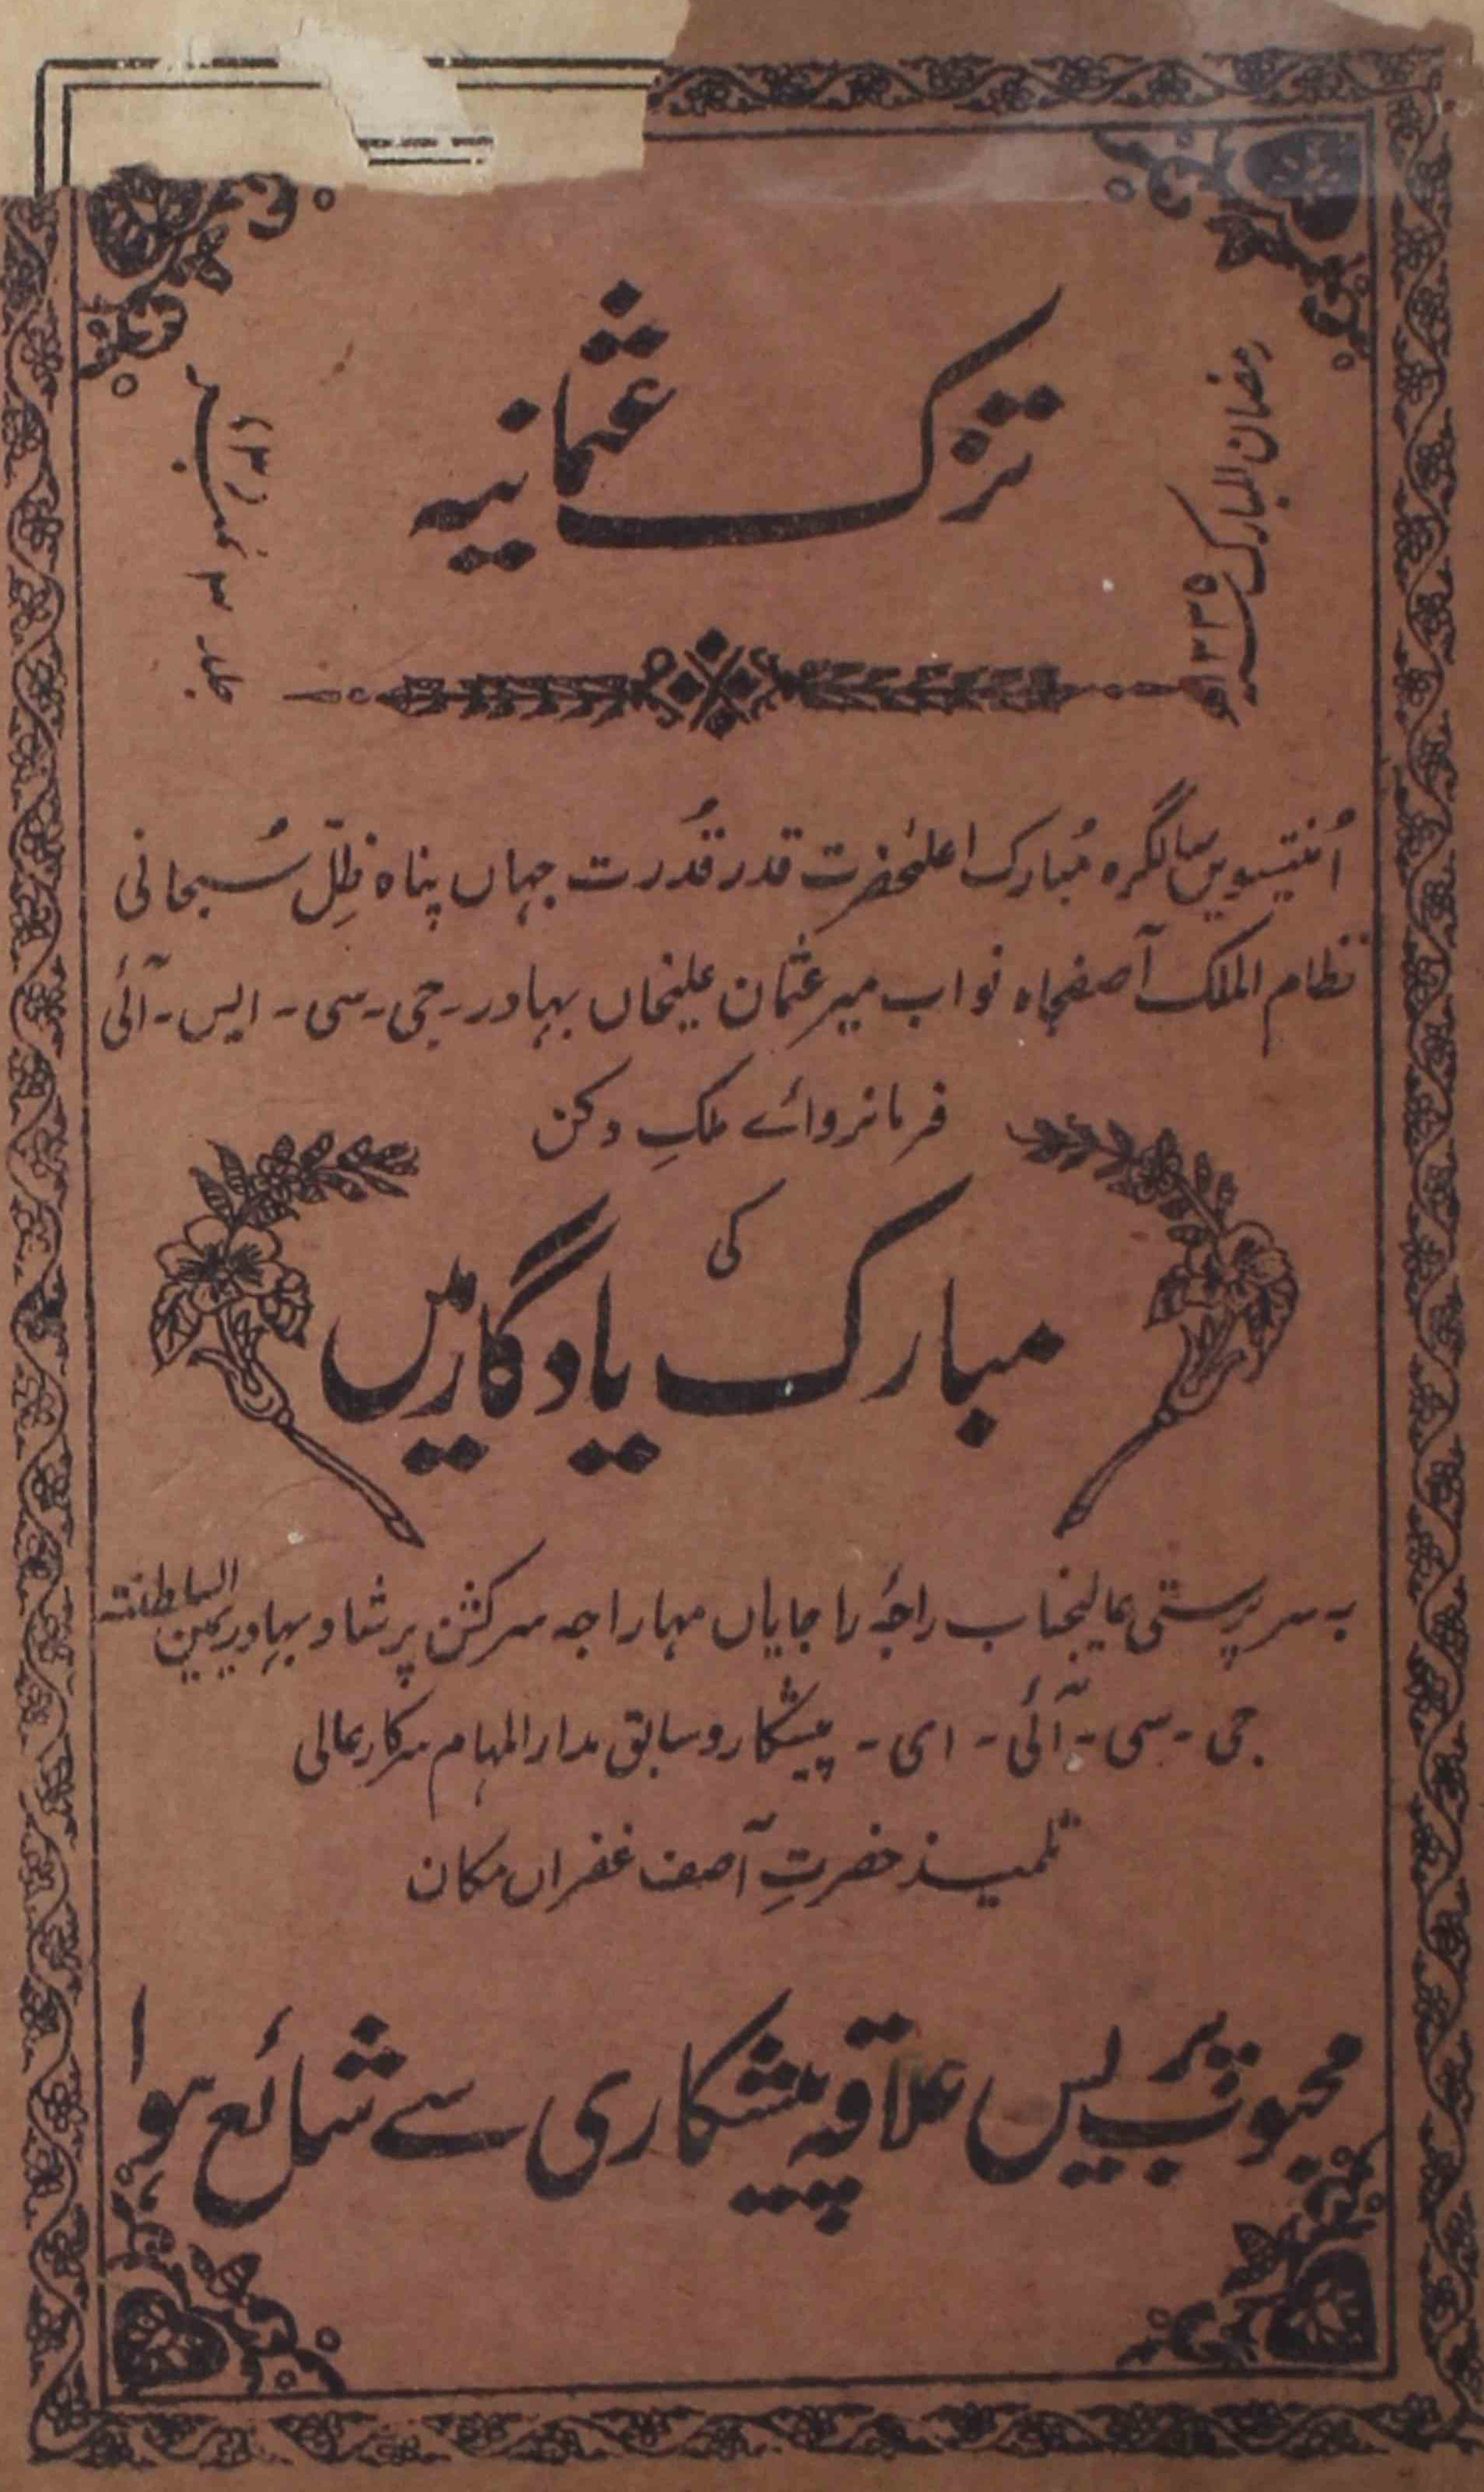 تزک عثمانیہ
رمضان المبارک ۱۳۳۵ھ
جلد ۳ نمبر (۳)
اُنتیسویں سالگرہ مُبارک اعلیٰحضرت قدر قُدرت جہاں پناہ ظِلّ سُبحانی
نظام الملک آصفجاہ نواب میر عثمان علیخاں بہادر-جی-سی-ایس-آئی
فرمانروائے ملکِ دکن
کی
مبارک یادگار میں
بہ سرپرستی عالیجناب راجۂ راجایاں مہاراجہ سرکشن پرشاد بہادر یمین السلطنتہ
جی-سی-آئی-ای-پیشکار و سابق مدارالمہام سرکار عالی
تلمیذ حضرتِ آصف غفراں مکان
محبوب پریس علاقہ پیشکاری سے شائع ہوا